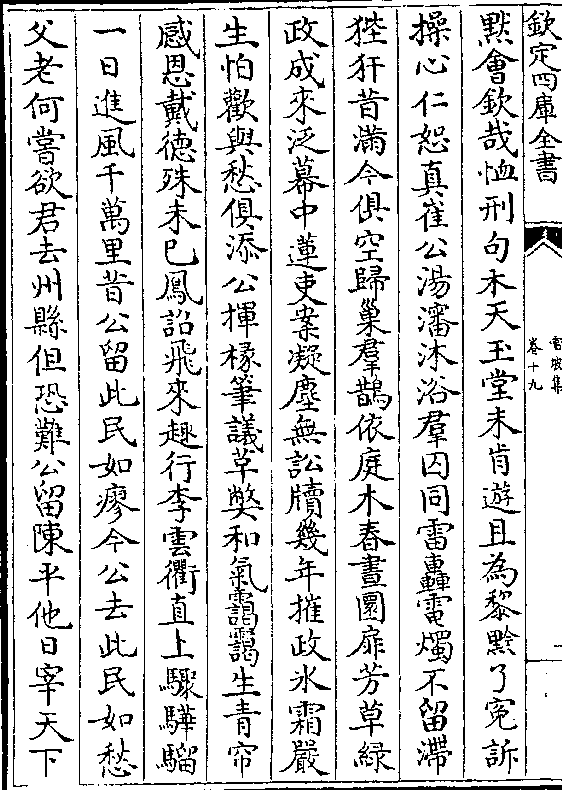 欽定四庫全書
卷十九
黙會欽哉恤刑句木天玉堂未肯遊且為黎黔了寃訴
操心仁恕真崔公湯瀋沐浴羣囚同雷轟電燭不留滯
狴犴昔滿今俱空歸巢羣鵲依庭木春晝圜扉芳草緑
政成來泛幕中蓮吏案凝塵無訟牘幾年摧政氷霜嚴
生怕歡與愁俱添公揮椽筆議草獘和氣靄靄生青帘
感恩戴徳殊未已鳳詔飛來趣行李雲衢直上驟驊騮
一日進風千萬里昔公留此民如瘳今公去此民如愁
父老何嘗欲君去州縣但恐難公留陳平他日宰天下